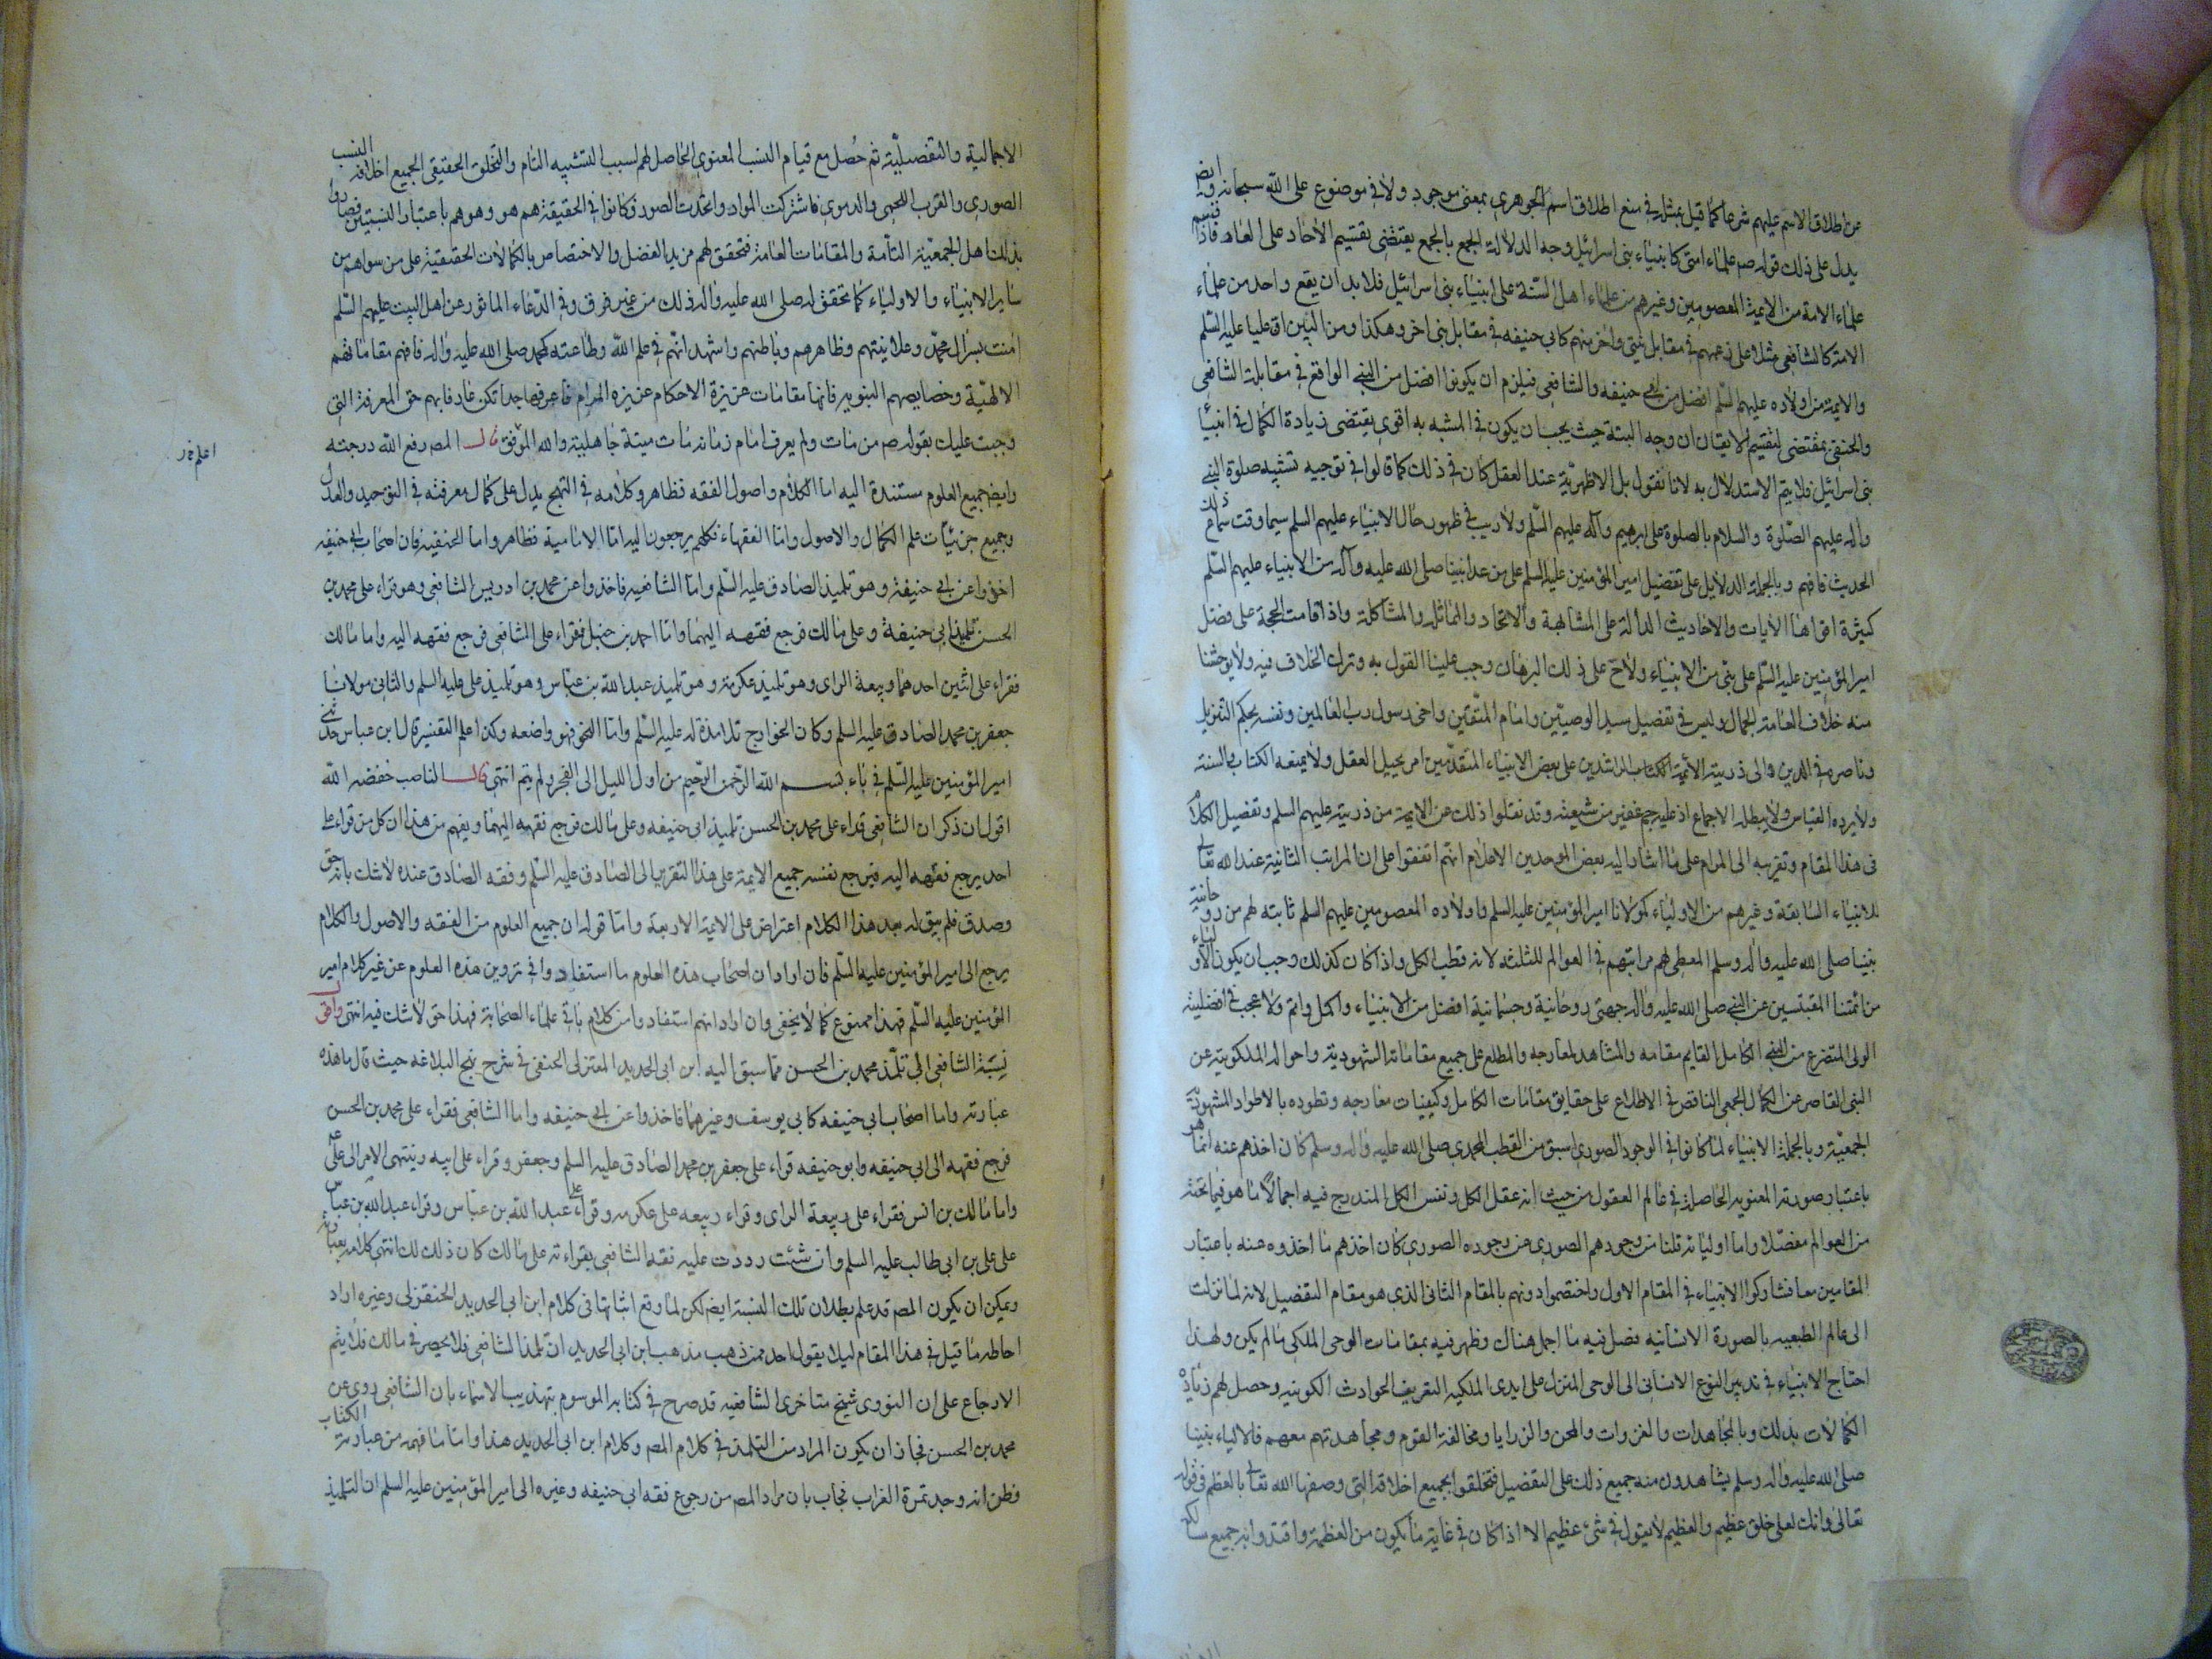 عن اطلاق الاسم عليهم شرعا كما قيل بمثله في منع اطلاق اسم الجوهرى بمعنى موجود ولا في موضوع على الله سبحانه وايض
يدل على ذلك قوله ص علماء امتى كانبياء بنى اسرائيل وجه الدلالة الجمع بالجمع يقتضى تقسيم الاحاد على فاذا قسم
علماء الامة من الايمة المعصومين وغيرهم من علماء اهل السنة على انبياء بنى اسرائيل فلا بد ان يقع واحد من علماء
الامة كالشافعى مثلا على زعمهم في مقابل نبى واخر منهم كابى حنيفه في مقابل نبى اخر وهكذا ومن البين ان عليا عليه السلم
والايمة من اولاده عليهم السلم افضل من ابى حنيفه والشافعى فيلزم ان يكونوا افضل من النبى الواقع في مقابلة الشافعى
والحنفى بمقتضى التقسيم لا يقال ان وجه الشبه حيث يجب ان يكون في المشبه به اقوى يقتضى زيادة الكمال في انبياء
بنى اسرائيل فلا يتم الاستدلال به لانا نقول بل الاظهرية عند العقل كان في ذلك كما قالوا في توجيه تشبيه صلوة النبى
واله عليهم الصلوة والسلام بالصلوة على ابرهيم وآله عليهم السلم ولا ريب في ظهور حال الانبياء عليهم السلم سيما وقت سماع ذلك
الحديث فافهم وبالجملة الدلايل على تفضيل امير المؤمنين عليه السلم على من عدا نبينا صلى الله عليه وآله من الانبياء عليهم السلم
كثيرة اقواها الايات والاحاديث الدالة على المشابهة والاتحاد والمماثلة والمشاكلة واذا قامت الحجة على فضل
امير المؤمنين عليه السلم على نبى من الانبياء ولاح على ذلك البرهان وجب علينا القول به وترك الخلاف فيه ولا يوحشنا
منه خلاف العامة الجهال وليس في تفضيل سيد الوصيين وامام المتقين واخى رسول رب العالمين ونفسه بحكم التنزيل
وناصره في الدين والى ذريته الائمة الراشدين على بعض الانبياء المتقدمين امر يحيل العقل ولا يمنعه الكتاب والسنة
ولا يرده القياس ولا يبطله الاجماع اذ عليه جم غفير من شيعته وقد نقلوا ذلك عن الايمة من ذريته عليهم السلم وتفصيل الكلام
في هذا المقام وتقريبه الى المرام على ما اشار اليه بعض الموحدين الاعلام انهم اتفقوا على ان المراتب الثانية عند الله تعالى
للانبياء السابقة وغيرهم من الاولياء كمولانا امير المؤمنين عليه السلم واولاده المعصومين عليهم السلم ثابته لهم من روحانية
نبينا صلى الله عليه واله وسلم المعطى لهم مراتبهم في العوالم الثلثة لانه قطب الكل واذا كان كذلك وجب ان يكون الاولياء
من ائمتنا المقتبسين عن النبى صلى الله عليه واله جهتى روحانية وجسمانية افضل من الانبياء واكمل واتم ولا عجب في افضلية
الولى المتفرع من النبى الكامل القايم مقامه والمشاهد لمعارجه والمطلع على جميع مقاماته الشهودية واحواله الملكوتية عن
النبى القاصر عن الكمال الجمعى الناقص في الاطلاع على حقايق مقامات الكامل وكيفيات معارجه وتطوره بالاطوار المشهودية
الجمعية وبالجملة الانبياء لما كانوا في الوجود الصورى اسبق من القطب المحمدى صلى الله عليه واله وسلم كان اخذهم عنه انما هو
باعتبار صورته المعنوية الحاصلة في عالم العقول من حيث انه عقل الكل ونفس الكل المندرج فيه اجمالا ما هو فيما تحته
من العوالم مفصلا واما اوليائه قلنا من وجودهم الصورى عن وجوده الصورى كان اخذهم ما اخذوه عنه باعتبار
المقامين معا فشاركوا الانبياء في المقام الاول واختصوا دونهم بالمقام الثانى الذى هو مقام التفصيل لانه لما نزلت
الى عالم الطبيعه بالصورة الانسانية فصل فيه ما اجمل هناك وظهر فيه بمقامات الوحى الملكى ما لم يكن ولهذا
احتاج الانبياء في تدبير النوع الانسانى الى الوحى المنزل على ايدى الملكية التعريف الحوادث الكونية وحصل لهم زيادة
الكمالات بذلك وبالمجاهدات والغزوات والمحن والرزايا ومخالفة القوم ومجاهدتهم معهم فالاولياء بنبينا
صلى الله عليه واله وسلم يشاهدون منه جميع ذلك على التفصيل فتخلقوا بجميع اخلاقه التى وصفها الله تعالى بالعظم في قوله
تعالى وانك لعلى خلق عظيم والعظيم لا يقول في شئ عظيم الا اذا كان في غاية ما يكون من العظمة واقتدوا به جميع مسالكه
الاجمالية والتفصيلية ثم حصل مع قيام النسب المعنوى الحاصل لهم لسبب التشبيه التام والتخلق الحقيقى الجميع اخلاقه النسب
الصورى والقرب اللحمى والدموى فاشتركت المواد واتحدت الصور وكانوا في الحقيقة هم هو وهو هم باعتبار النسبتين فصاروا
بذلك اهل الجمعية التامة والمقامات العامة فتحقق لهم مزيد الفضل والاختصاص بالكمالات الحقيقية على من سواهم من
ساير الانبياء والاولياء كما تحقق له صلى الله عليه واله ذلك من غير فرق وفي الدعاء الماثور عن اهل البيت عليهم السلم
امنت بسر ال محمد وعلانيتهم وظاهرهم وباطنهم واشهد انهم في علم الله وطاعته كمحمد صلى الله عليه واله فافهم مقاماتهم
الالهية وخصايصهم النبويه فانها مقامات عزيزة الاحكام عزيزة المرام فاعرفها جدا تكن عارفا بهم حق المعرفة التى
وجبت عليك بقوله ص من مات ولم يعرف امام زمانه مات ميتة جاهلية والله الموفق قال المص رفع الله درجته
وايض جميع العلوم مستندة اليه اما الكلام واصول الفقه فظاهر وكلامه في النهج يدل على كمال معرفته في التوحيد والعدل
وجميع جزئيات علم الكلام والاصول واما الفقهاء فكلهم يرجعون اليه اما الامامية فظاهر واما الحنفية فان اصحاب ابى حنيفه
اخذوا عن ابى حنيفة وهو تلميذ الصادق عليه السلم واما الشافعيه فاخذوا عن محمد بن ادريس الشافعى وهو قراء على محمد بن
الحسن تلميذ ابى حنيفة وعلى مالك فرجع فقهه اليهما واما احمد بن حنبل فقراء على الشافعى فرجع فقهه اليه واما مالك
فقراء على اثنين احدهما ربيعة الراى وهو تلميذ عكرمة وهو تلميذ عبد الله بن عباس وهو تلميذ على عليه السلم والثانى مولانا
جعفر بن محمد الصادق عليه السلم وكان الخوارج تلامذة له عليه السلم واما النحو فهو واضعه وكذا علم التفسير قال ابن عباس حدثنى
امير المؤمنين عليه السلم في باء بسم الله الرحمن الرحيم من اول الليل الى الفجر ولم يتم انتهى قال الناصب خفضه الله
اقول ان ذكر ان الشافعى قراء على محمد بن الحسن تلميذ ابى حنيفه وعلى مالك فرجع فقهه اليهما ويفهم من هذا ان كل من قراء على
احد يرجع فقهه اليه فيرجع نفسه جميع الايمة على هذا التقرير الى الصادق عليه السلم وفقه الصادق عنده لا شك بانه حق
وصدق فلم يبق له بعد هذا الكلام اعتراض على الايمة الاربعة واما قوله ان جميع العلوم من الفقه والاصول والكلام
يرجع الى امير المؤمنين عليه السلم فان اراد ان اصحاب هذه العلوم ما استفادوا في تدوين هذه العلوم عن غير كلام امير
المؤمنين عليه السلم فهذا ممنوع كما لا يخفى وان اراد انهم استفادوا من كلام باقى علماء الصحابة فهذا حق لا شك فيه انتهى واقول
نسبة الشافعى الى تلمذ محمد بن الحسن مما سبق اليه ابن ابى الحديد المعتزلى الحنفى في شرح نهج البلاغه حيث قال ما هذه
عبارته واما اصحاب ابى حنيفه كابى يوسف وغيرهما فاخذوا عن ابى حنيفه واما الشافعى فقراء على محمد بن الحسن
فرجع فقهه الى ابى حنيفه وابو حنيفه قراء على جعفر بن محمد الصادق عليه السلم وجعفر وقراء على ابيه وينتهى الامر الى على ع
واما مالك بن انس فقراء على ربيعة الراى وقراء ربيعه على عكرمه وقراء على عبد الله بن عباس وقراء عبد الله بن عباس
على على بن ابى طالب عليه السلم وان شئت رددت عليه فقه الشافعى بقراءته على مالك كان ذلك لك انتهى كلامه بعبارته
ويمكن ان يكون المص قد علم بطلان تلك النسبة ايض لكن لما وقع اثباتها في كلام ابن ابى الحديد وغيره اراد
احاطه ما قيل في هذا المقام ليلا يقول احد ممن ذهب مذهب ابن ابى الحديد ان تلمذ الشافعى فلا يحصر في مالك فلا يتم
الارجاع على ان النووى شيخ متاخرى الشافعيه قد صرح في كتابه الموسوم بتهذيب الاسماء بان الشافعى روى عن
محمد بن الحسن فجاز ان يكون المراد من التلمذ في كلام المص وكلام ابن ابى الحديد هذا واما ما فهمه من عبارة الكتاب
وظن انه وجد تمرة الغراب فجاب بان مراد المص من رجوع فقه ابى حنيفه وغيره الى امير المؤمنين عليه السلم ان التلميذ